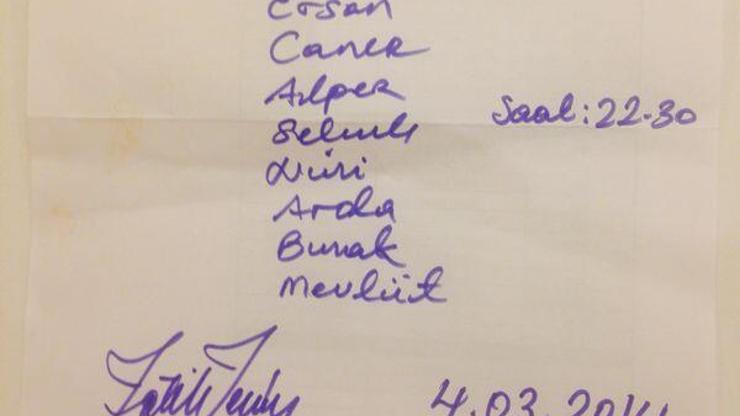 Ersan
Caner
Alper
Saat:22.30
Selçuk
Nuri
Arda
Burak
Mevlüt
Fatih Terim
4.03.2014